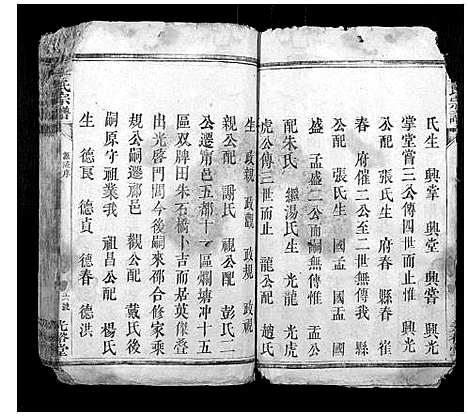 氏生 興掌 興堂 興嘗 興光
掌堂嘗三公傳四世而止惟光
公配 張氏生 府 縣春 崔
春 府催二公至二世無傳我 縣
公配 張氏生 國孟 國盂 國
盛 孟盛二公而嗣無傳惟 盂公
配朱氏 繼湯氏生 光龍 光虎
虎公傳三世而止 龍公配 趙氏
生 政規 政觀 政視
親公配 謝氏 視公配 彭氏二
公遷甯邑五都十一區爛塘冲十五
區双牌田朱石橋卜吉而居英傑疊
出光啓門閭今後嗣來邵合修家乘
公嗣遷邵邑 觀公配 戴氏後
嗣原守祖業我 祖昌公配 楊氏
生 德良 德貞 德春 德洪
氏宗譜